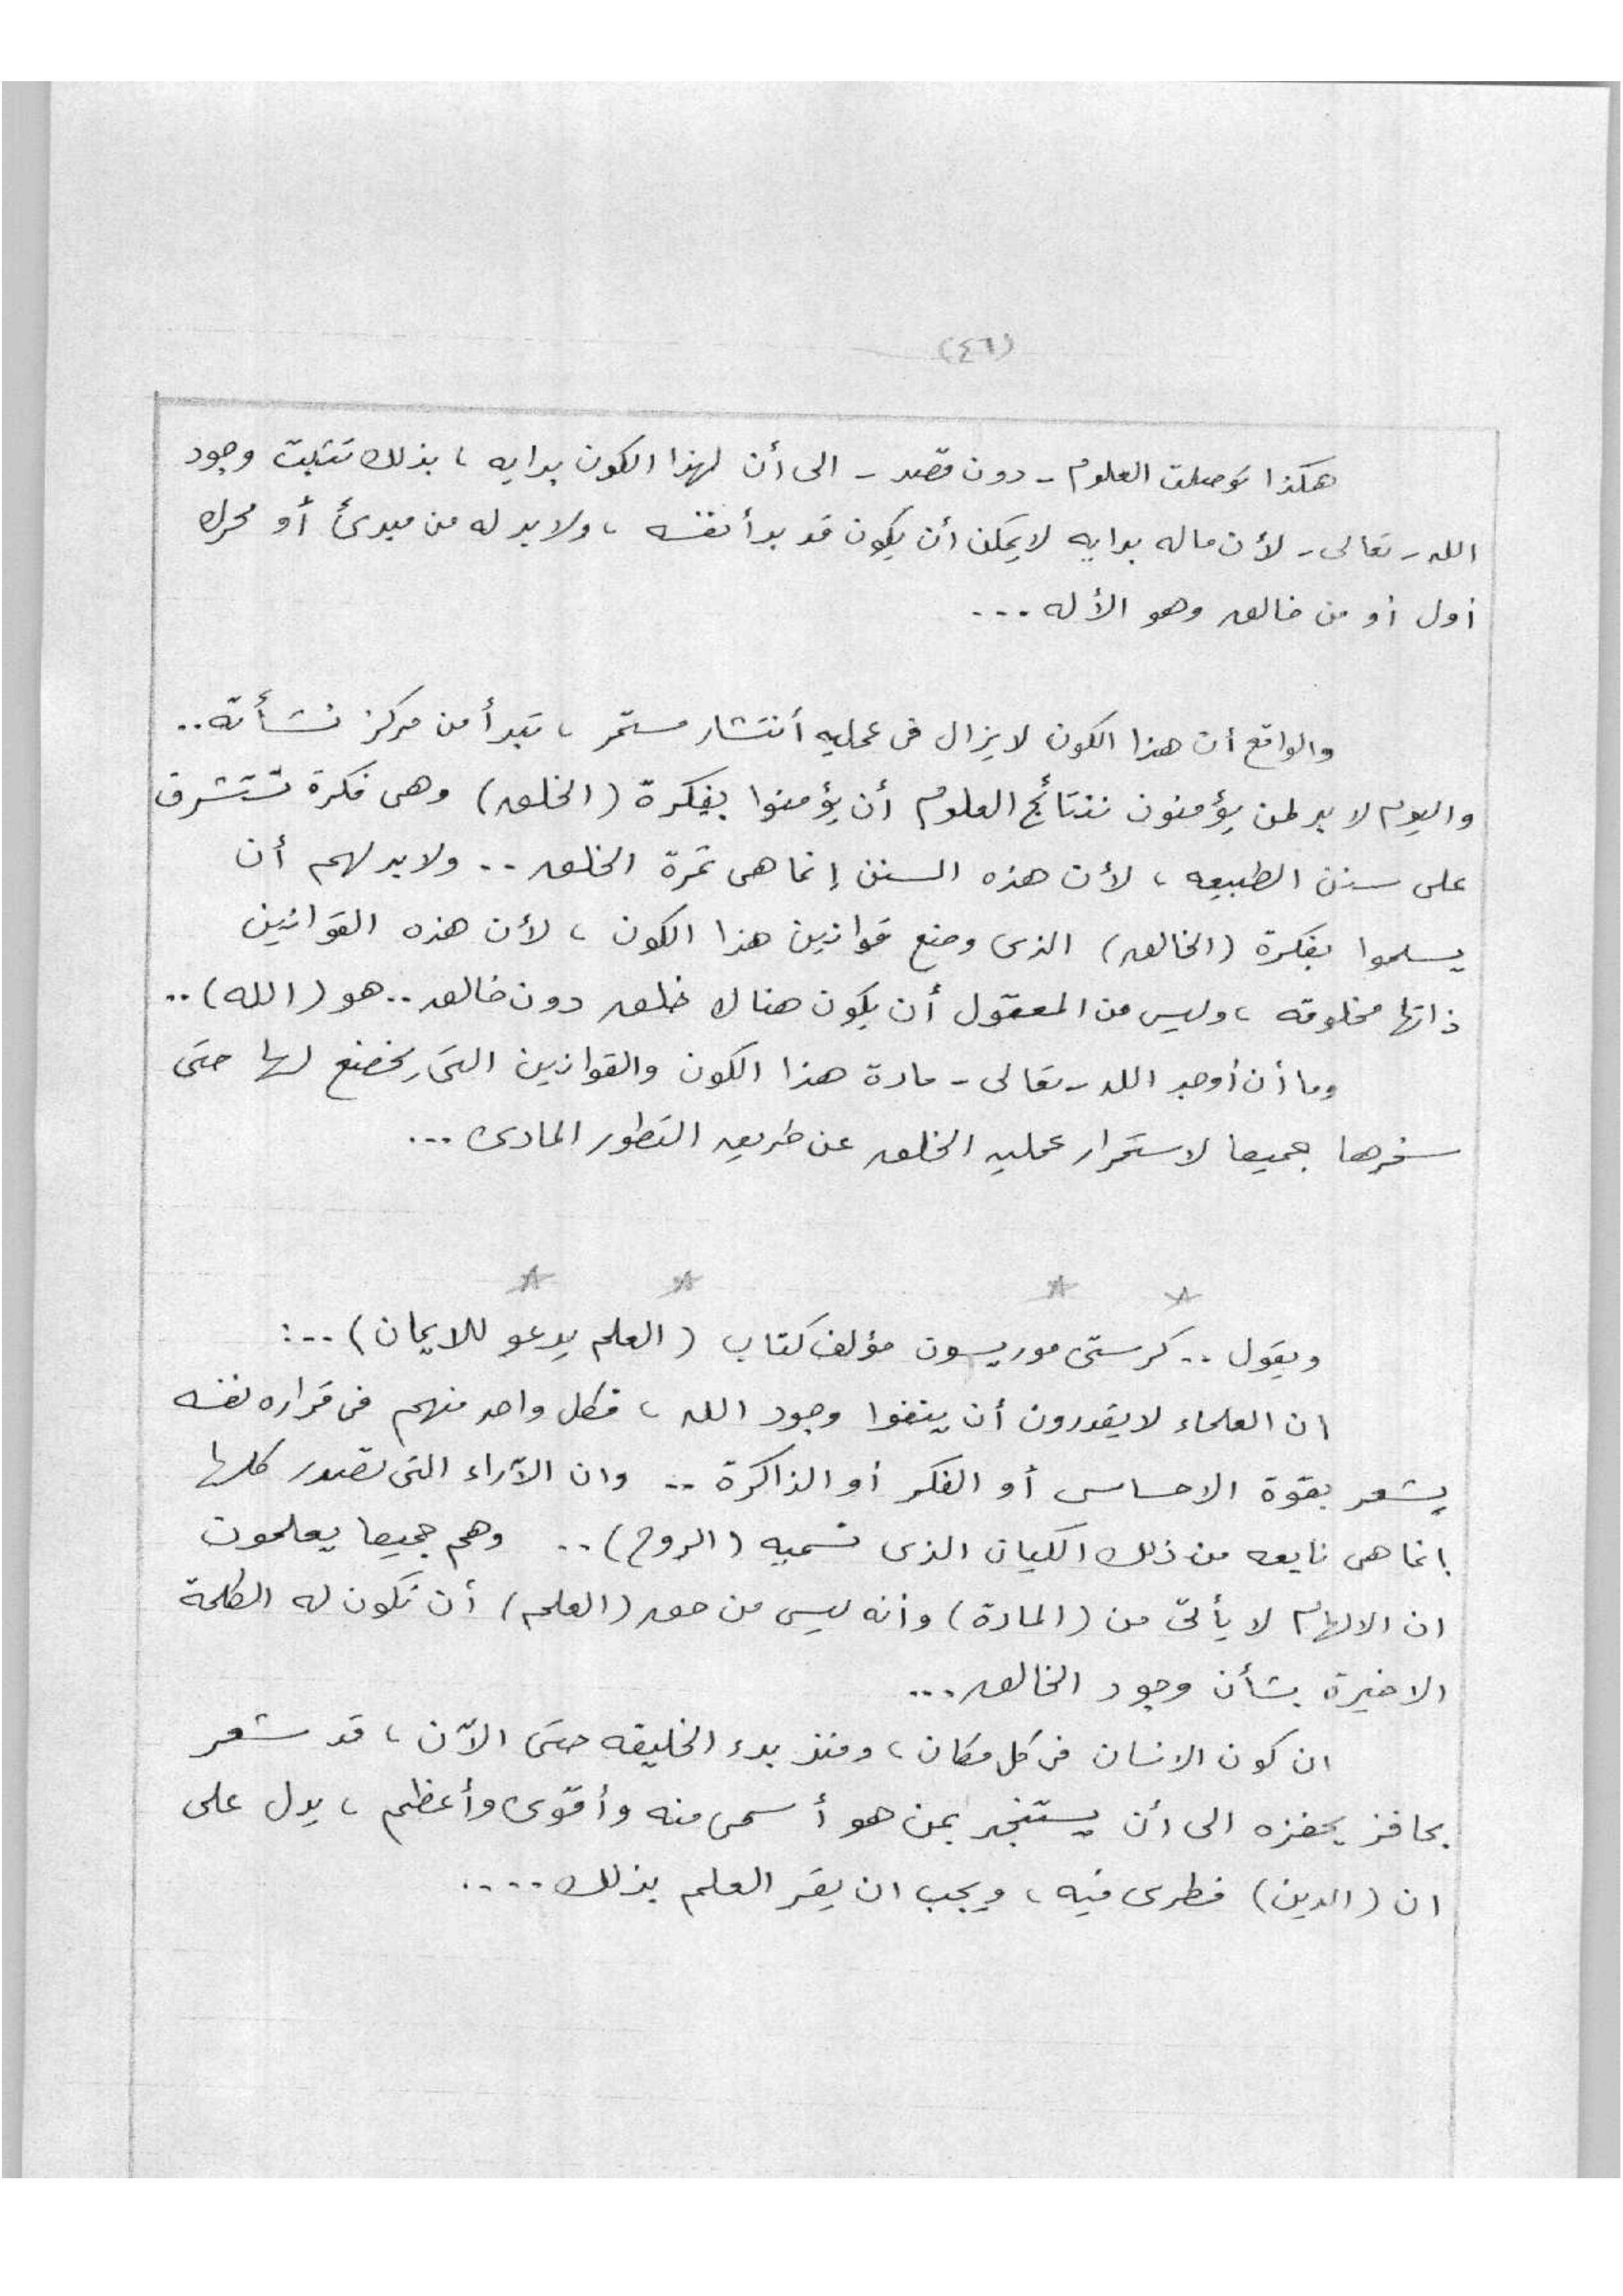 (٤٦)
هكذا توصلت العلوم - دون قصد - الى أن لهذا الكون بدايه ، بذلك تثبت وجود
الله - تعالى - لأن ماله بدايه لايمكن أن يكون قد بدأ نفسه ، ولابد له من مبدئ أو محرك
أول أو من خالق وهو الأله ...
والواقع أن هذا الكون لايزال فى عمليه أنتشار مستمر ، تبدأ من مركز نشأته ..
واليوم لابد لمن يؤمنون بنتائج العلوم أن يؤمنوا بفكرة (الخلق) وهى فكرة تستشرق
على سنن الطبيعه ، لأن هذه السنن إنما هى ثمرة الخلق .. ولابد لهم أن
يسلموا بفكرة (الخالق) الذى وضع قوانين هذا الكون ، لأن هذه القوانين
ذاتها مخلوقه ، وليس من المعقول أن يكون هناك خلق دون خالق .. هو (الله) ..
وما أن أوجد الله - تعالى - مادة هذا الكون والقوانين التى يخضع لها حتى
سخرها جميعا لاستمرار عمليه الخلق عن طريق التطور المادى ...
ويقول .. كرستى موريسون مؤلف كتاب (العلم يدعو للايمان) .. :
ان العلماء لايقدرون أن ينفوا وجود الله ، فكل واحد منهم فى قراره نفسه
يشعر بقوة الاحساس أو الفكر أو الذاكرة .. وان الآراء التى تصدر كلها
انما هى نابعه من ذلك الكيان الذى نسميه (الروح) .. وهم جميعا يعلمون
ان الالهام لا يأتى من (المادة) وأنه ليس من حق (العلم) أن تكون له الكلمة
الاخيرة بشأن وجود الخالق ...
ان كون الانسان فى كل مكان ، ومنذ بدء الخليقه حتى الآن ، قد شعر
بحافز يحفزه الى أن يستنجد بمن هو أسمى منه وأقوى وأعظم ، يدل على
ان (الدين) فطرى فيه ، ويجب ان يقر العلم بذلك ....